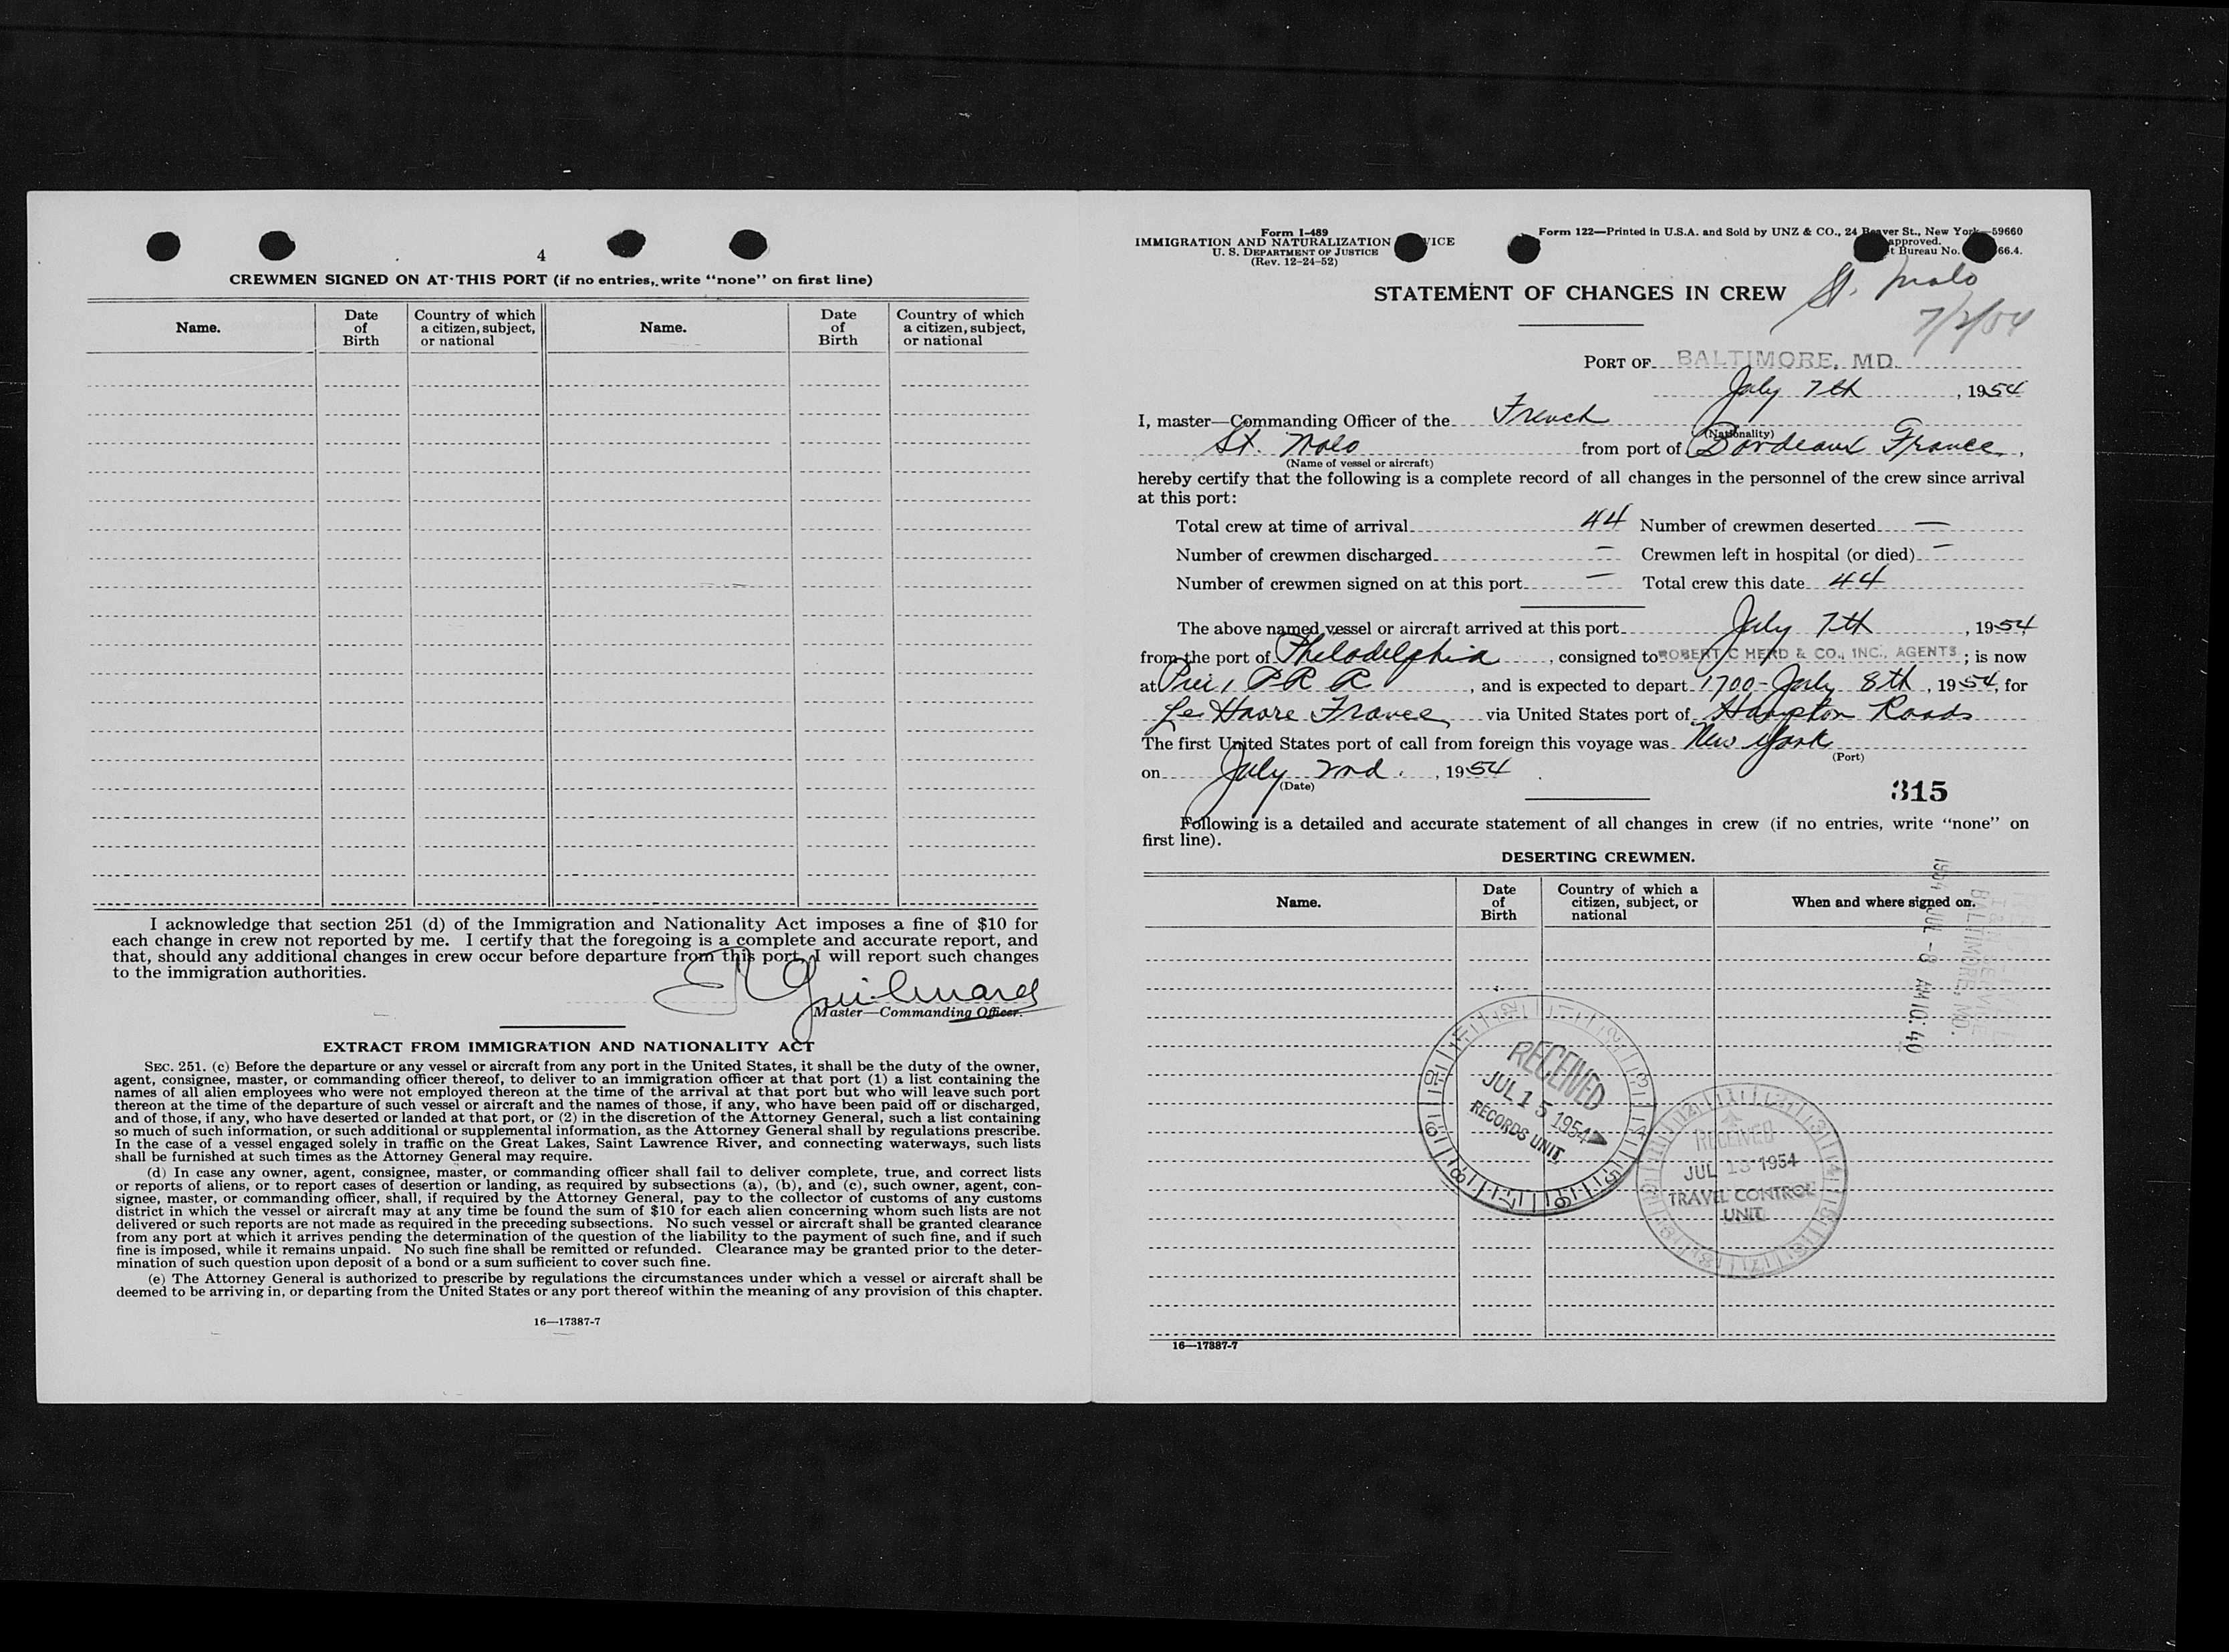 4
CREWMEN SIGNED ON AT THIS PORT (if no entries, write "none" on first line)
Name. Date of Birth Country of which a citizen, subject, or national Name. Date of Birth Country of which a citizen, subject, or national
I acknowledge that section 251 (d) of the Immigration and Nationality Act imposes a fine of $10 for
each change in crew not reported by me. I certify that the foregoing is a complete and accurate report, and
that, should any additional changes in crew occur before departure from this port, I will report such changes
to the immigration authorities.
Master—Commanding Officer.
EXTRACT FROM IMMIGRATION AND NATIONALITY ACT
SEC. 251. (c) Before the departure or any vessel or aircraft from any port in the United States, it shall be the duty of the owner,
agent, consignee, master, or commanding officer thereof, to deliver to an immigration officer at that port (1) a list containing the
names of all alien employees who were not employed thereon at the time of the arrival at that port but who will leave such port
thereon at the time of the departure of such vessel or aircraft and the names of those, if any, who have been paid off or discharged,
and of those, if any, who have deserted or landed at that port, or (2) in the discretion of the Attorney General, such a list containing
so much of such information, or such additional or supplemental information, as the Attorney General shall by regulations prescribe.
In the case of a vessel engaged solely in traffic on the Great Lakes, Saint Lawrence River, and connecting waterways, such lists
shall be furnished at such times as the Attorney General may require.
(d) In case any owner, agent, consignee, master, or commanding officer shall fail to deliver complete, true, and correct lists
or reports of aliens, or to report cases of desertion or landing, as required by subsections (a), (b), and (c), such owner, agent, con-
signee, master, or commanding officer, shall, if required by the Attorney General, pay to the collector of customs of any customs
district in which the vessel or aircraft may at any time be found the sum of $10 for each alien concerning whom such lists are not
delivered or such reports are not made as required in the preceding subsections. No such vessel or aircraft shall be granted clearance
from any port at which it arrives pending the determination of the question of the liability to the payment of such fine, and if such
fine is imposed, while it remains unpaid. No such fine shall be remitted or refunded. Clearance may be granted prior to the deter-
mination of such question upon deposit of a bond or a sum sufficient to cover such fine.
(e) The Attorney General is authorized to prescribe by regulations the circumstances under which a vessel or aircraft shall be
deemed to be arriving in, or departing from the United States or any port thereof within the meaning of any provision of this chapter.
16—17387-7
Form I-489
IMMIGRATION AND NATURALIZATION VICE
U. S. DEPARTMENT OF JUSTICE
(Rev. 12-24-52)
Form 122—Printed in U.S.A. and Sold by UNZ & CO., 24 Beaver St., New York—59660
approved.
t Bureau No. 66.4.
STATEMENT OF CHANGES IN CREW
St. Malo
7/2/54
PORT OF BALTIMORE, MD.
July 7th, 1954
I, master—Commanding Officer of the French
(Nationality)
St. Malo from port of Bordeaux France,
(Name of vessel or aircraft)
hereby certify that the following is a complete record of all changes in the personnel of the crew since arrival
at this port:
Total crew at time of arrival 44 Number of crewmen deserted —
Number of crewmen discharged — Crewmen left in hospital (or died) —
Number of crewmen signed on at this port — Total crew this date 44
The above named vessel or aircraft arrived at this port July 7th, 1954
from the port of Philadelphia, consigned to ROBERT C HERD & CO., INC., AGENTS; is now
at Pier 1 P R R, and is expected to depart 1700 - July 8th, 1954, for
Le Havre France, via United States port of Hampton Roads
The first United States port of call from foreign this voyage was New York
(Port)
on July 2nd, 1954
(Date)
315
Following is a detailed and accurate statement of all changes in crew (if no entries, write "none" on
first line).
DESERTING CREWMEN.
Name. Date of Birth Country of which a citizen, subject, or national When and where signed on.
1954 JUL -8 AM 10:40
BALTIMORE, MD.
RECEIVED
JUL 15 1954
RECORDS UNIT
RECEIVED
JUL 13 1954
TRAVEL CONTROL
UNIT
16—17387-7